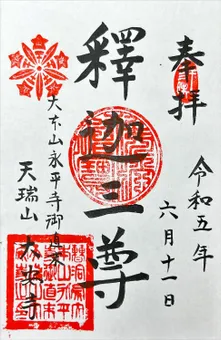 奉拝
令和五年
六月十一日
釋迦三尊
大本山永平寺御直末
天瑞山
大榮寺